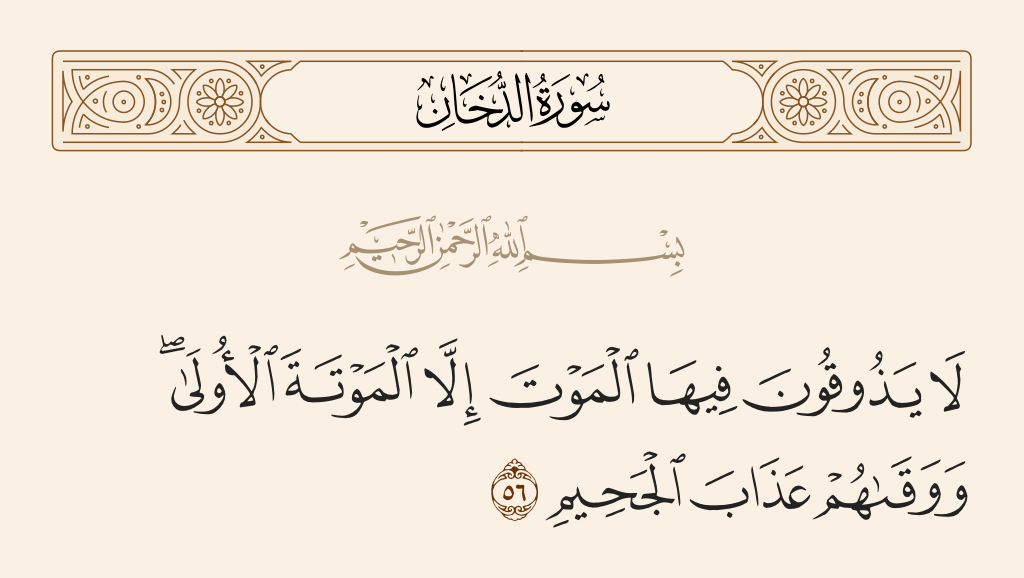 سُورَةُ الدُّخَانِ
بِسْمِ ٱللَّهِ ٱلرَّحْمَٰنِ ٱلرَّحِيمِ
لَا يَذُوقُونَ فِيهَا ٱلْمَوْتَ إِلَّا ٱلْمَوْتَةَ ٱلْأُولَىٰ ۖ
وَوَقَىٰهُمْ عَذَابَ ٱلْجَحِيمِ ٥٦